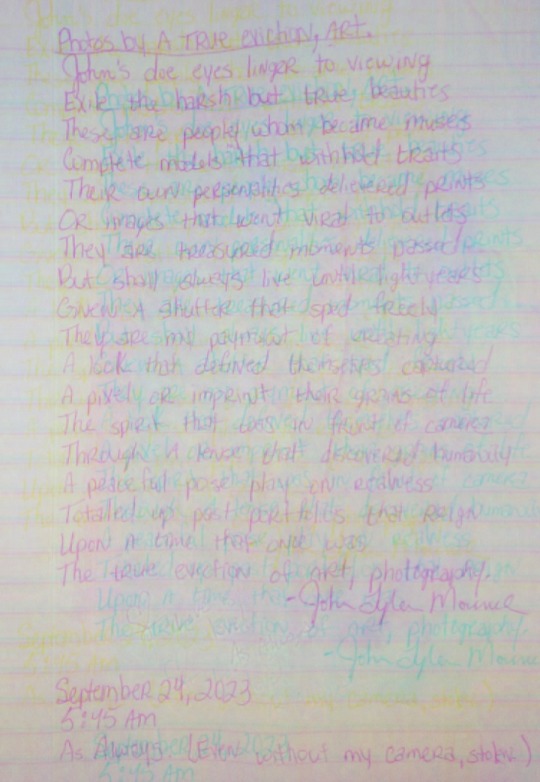 Photos by A TRUE eviction, ART.
John's doe eyes linger to viewing
Exile the harsh but true, beauties
These are people whom became muses
Complete models that withhold traits
Their own personalities delievered prints
OR images that went viral to outlets
They are treasured moments passed
But shall always live until lightyears
Given A shutter that sped freely
They're my payment of
A look that defined themselves captured
A pixel, or imprint their grains of life
The spirit that in front of camera
Through A lense, that discovered humanity
A peaceful pose, plays on
Totalled up past portfolio's that reign
Upon A time that once was
The true eviction of art, photography.
-John Tyler
September 24, 2023
5:45 Am
As Always. (Even without my camera, stolen.)